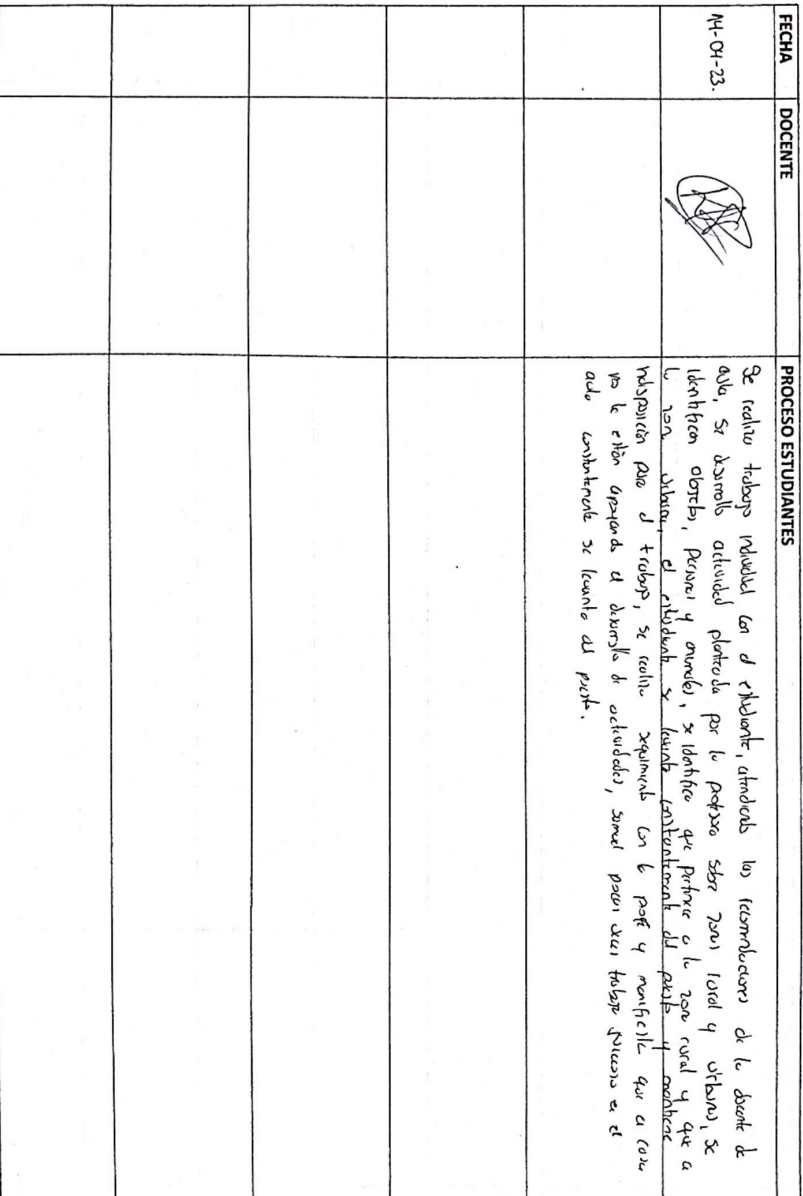 FECHA
DOCENTE
PROCESO ESTUDIANTES
14-04-23.
Se realiza trabajo individual con el estudiante, atendiendo las recomendaciones de la docente de
aula, se desarrolla actividad planteada por la profesora sobre zonas rural y urbanas, se
identifican objetos, personas y animales, se identifica que pertenece a la zona rural y que a
la zona urbana, el estudiante se levanta constantemente del puesto y mantiene
indisposición para el trabajo, se realiza seguimiento con la profe y manifiesta que en casa
no le están apoyando el desarrollo de actividades, samuel pocas veces trabaja en el
aula constantemente se levanta del puesto.